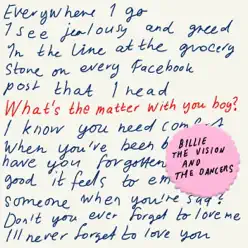 Everywhere I go
I see jealousy and greed
In the line at the grocery
store on every Facebook
post that I read
What's the matter with you boy?
I know you need com
When you've been b
have you forgotten
good it feels to em
someone when you're sad?
Don't you ever forget to love me
I'll never forget to love you
BILLIE
THE VISION
AND
THE DANCERS